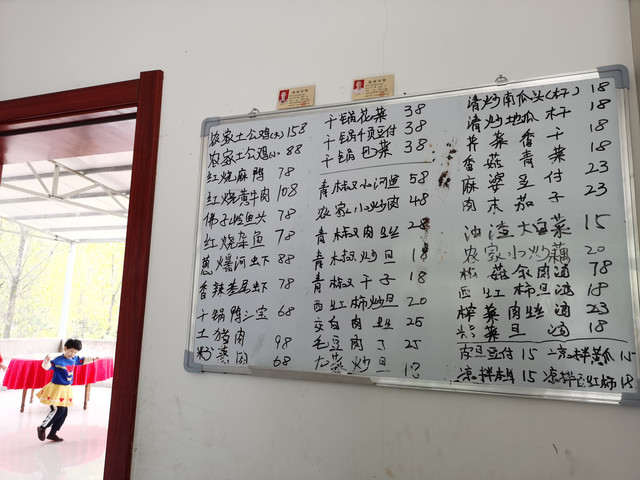 农家土公鸡(大) 158
农家土公鸡(小) 88
红烧麻鸭 78
红烧黄牛肉 108
佛子岭鱼头 78
红烧杂鱼 78
葱爆河虾 88
香辣基尾虾 78
干锅鸭三宝 68
土猪肉 98
粉蒸肉 68
干锅花菜 38
干锅千页豆付 38
干锅包菜 38
青椒小河鱼 58
农家小炒肉 48
青椒肉丝 28
青椒炒旦 18
青椒干子 18
西红柿炒旦 20
茭白肉丝 25
毛豆肉丁 25
九菜炒旦 18
清炒南瓜头(杆) 18
清炒地瓜杆 18
芹菜香干 18
香菇青菜 18
麻婆豆付 23
肉末茄子 23
油渣大白菜 15
农家小炒藕 20
肉汤 78
西红柿旦汤 18
榨菜肉丝汤 23
紫菜旦汤 18
皮旦豆付 15 凉拌黄瓜 15
凉拌木耳 15 凉拌西红柿 18